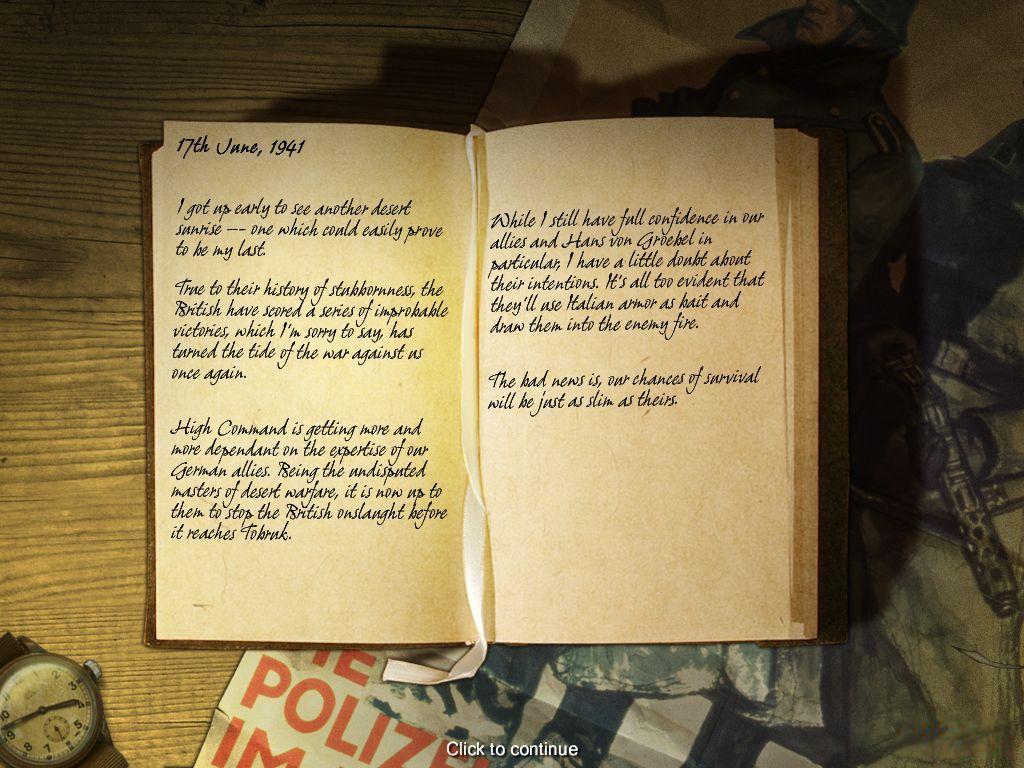 17th June, 1941
I got up early to see another desert
sunrise -- one which could easily prove
to be my last.
True to their history of stubbornness, the
British have scored a series of improbable
victories, which I'm sorry to say, has
turned the tide of the war against us
once again.
High Command is getting more and
more dependant on the expertise of our
German allies. Being the undisputed
masters of desert warfare, it is now up to
them to stop the British onslaught before
it reaches Tobruk.
While I still have full confidence in our
allies and Hans von Groebel in
particular, I have a little doubt about
their intentions. It's all too evident that
they'll use Italian armor as bait and
draw them into the enemy fire.
The bad news is, our chances of survival
will be just as slim as theirs.
POLIZE
IM
Click to continue